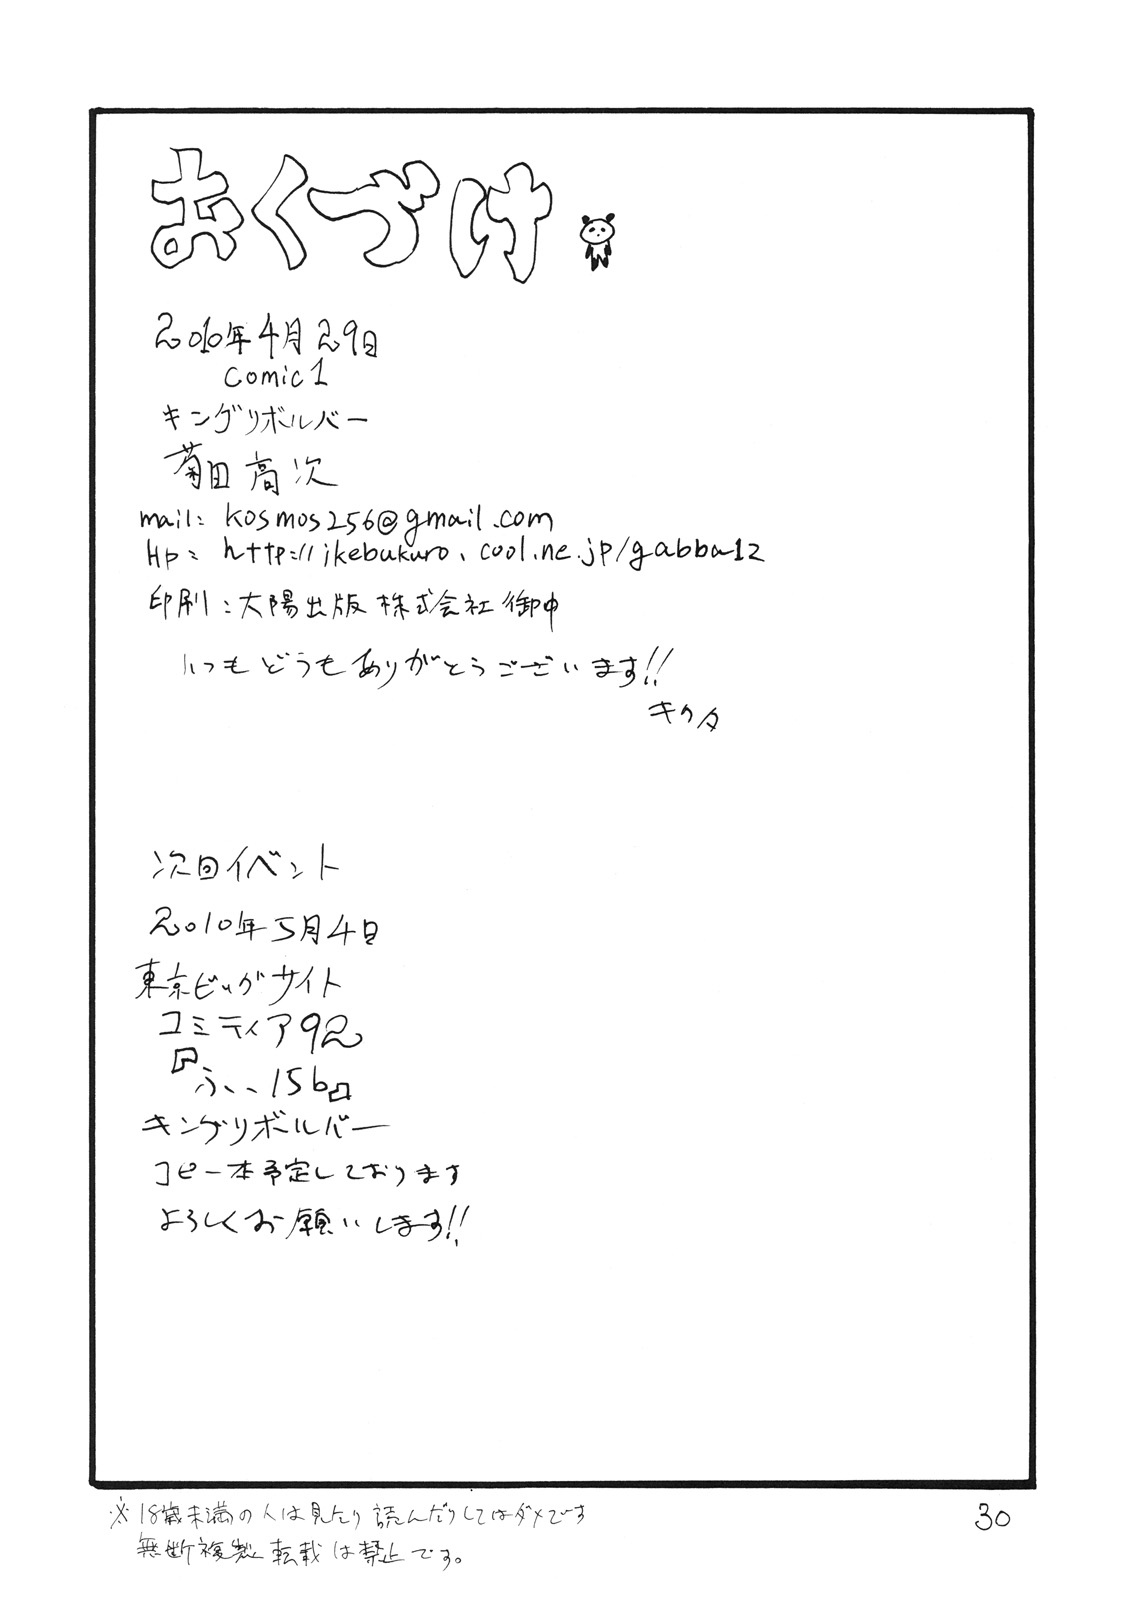 おくづけ
2010年4月29日
comic1
キングリボルバー
菊田高次
mail: kosmos256@gmail.com
Hp: http://ikebukuro.cool.ne.jp/gabba12
印刷:大陽出版株式会社御中
いつもどうもありがとうございます!!
キクタ
次回イベント
2010年5月4日
東京ビッグサイト
コミティア92
『ふ、、15b』
キングリボルバー
コピー本予定しております
よろしくお願いします!!
※18歳未満の人は見たり読んだりしてはダメです
無断複製転載は禁止です。
30